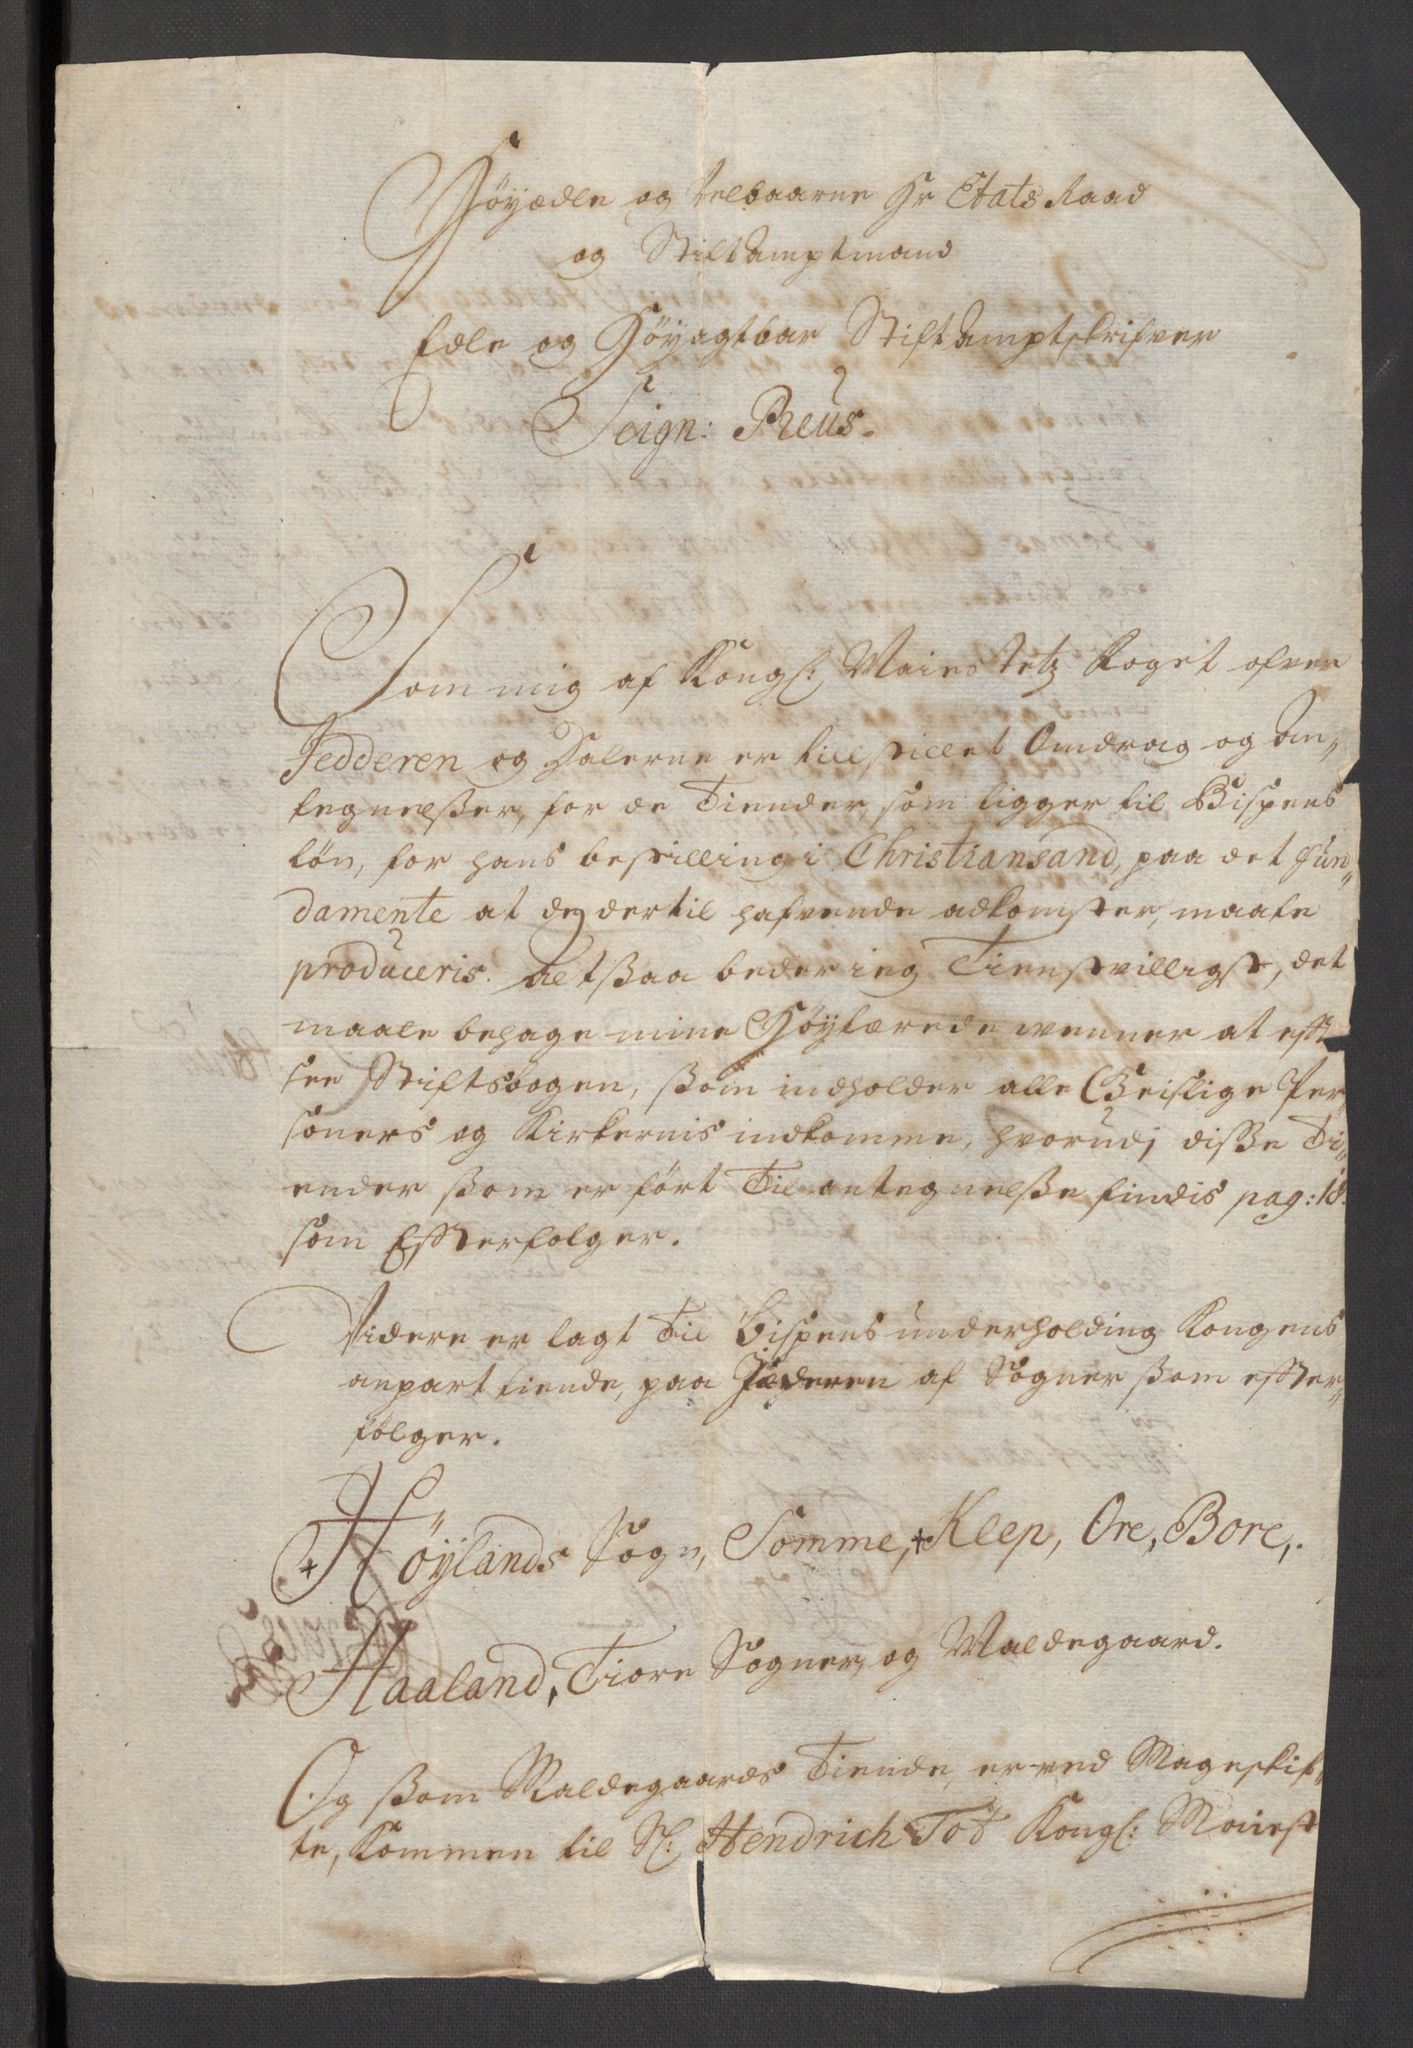 Höyædle og Velbaarne Hr Etats Raad
og Stiftamptmand
Edle og Höyagtbar Stiftamptskrifver
Seign: Preus.
Som mig af Kongl: Maiestetz foget ofver
Jedderen og Dalerne er tillstillet Omdrag og An„
tegnelßer, for de Tiender, som ligger til Bispens
lön, for hans bestilling i Christiansand, paa det fun„
damente at de dertil hafvende adkomster, maate
produceris. Altßaa beder ieg Tienstvilligst, det
maate behage mine Höylærede venner at eff
see Stiftsbogen, ßom indholder alle Geistlige Per„
soners og Kirkernis indkomme, hvorudj disße Ti„
ender ßom er fört Til antegnelße findis pag: 18.
som Effterfolger.
Videre er lagt Til Bispens underholding Kongens
anpart tiende, paa Jæderen af Sogner ßom effter„
fölger.
+ Höylands Sogn, Somme, + Kleep, Ore, Bore,
Haaland, Tiore Sogner, og Maldegaard.
Og ßom Maldegaards Tiende, er ved Mageskif„
te, Kommen til Sl: Hendrich Tot Kongl: Maiest